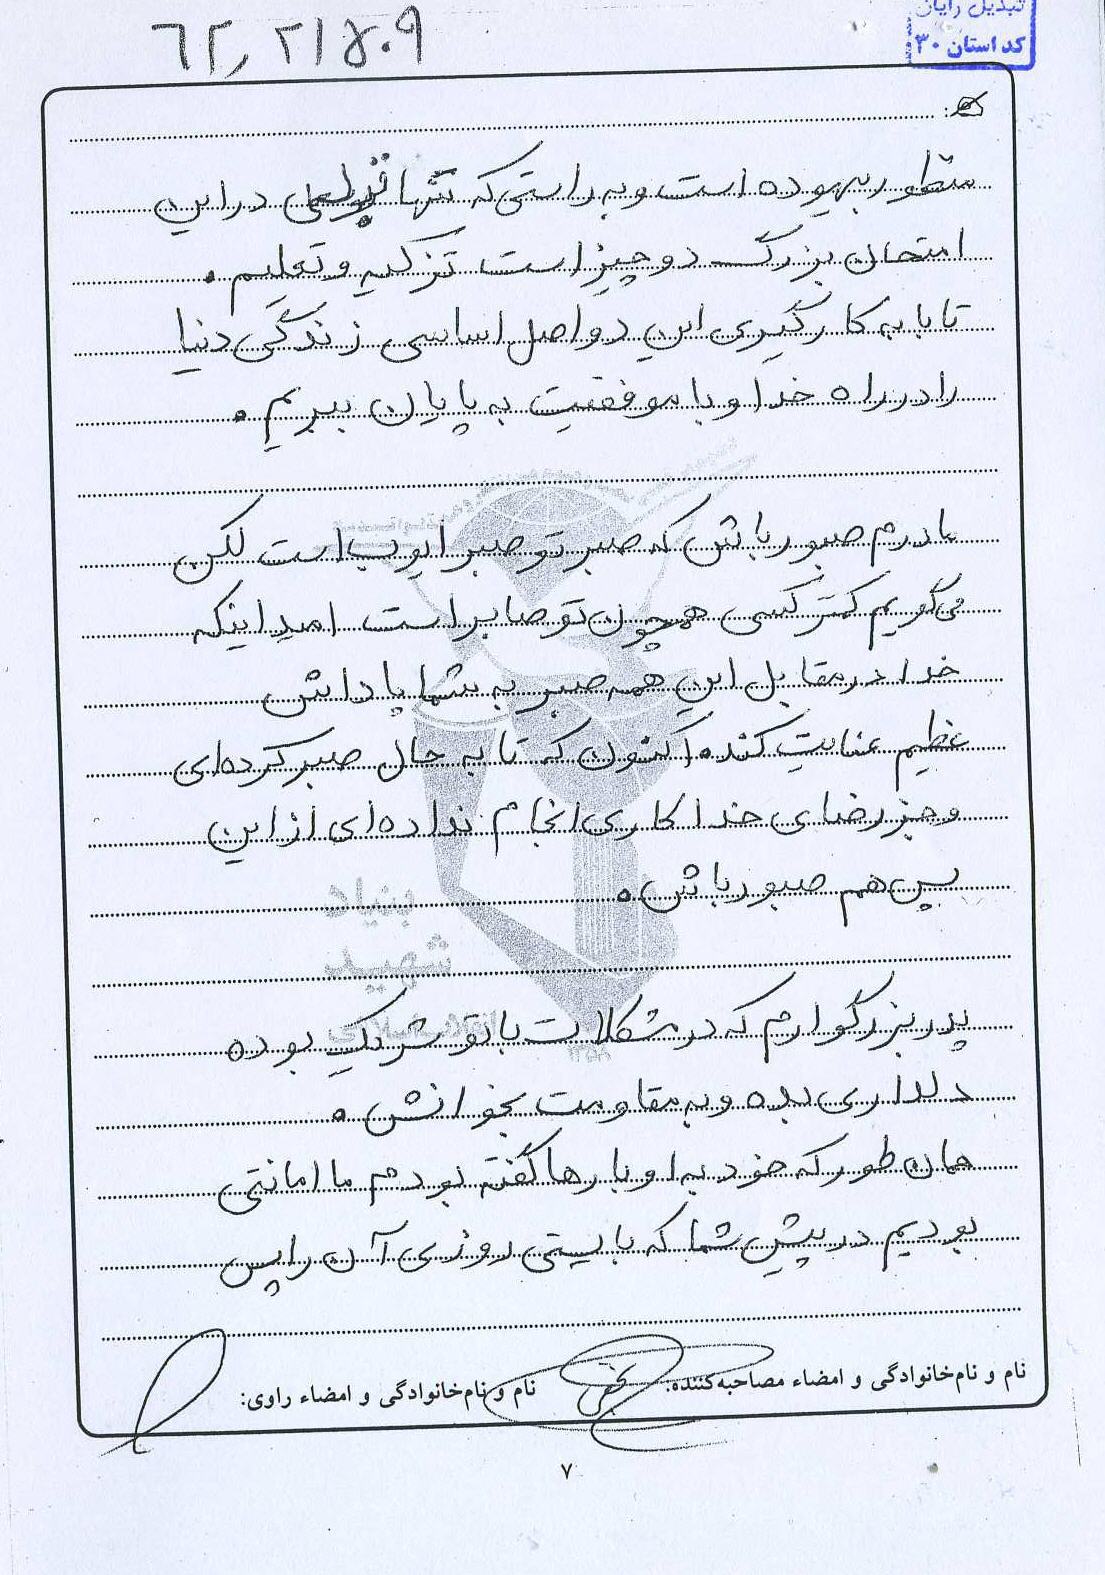 تبدیل رایان
کد استان ۳۰
۶۲,۲۱۵۰۹
منظور بیهوده است و به راستی که تنها قبولی در این
امتحان بزرگ دو چیز است تزکیه و تعلیم.
تا با به کارگیری این دو اصل اساسی زندگی دنیا
را در راه خدا و با موفقیت به پایان ببریم.
مادرم صبور باش که صبر تو صبر ایوب است لکن
می گویم کمتر کسی همچون تو صابر است امید اینکه
خدا در مقابل این همه صبر به شما پاداش
عظیم عنایت کند. اکنون که تا به حال صبر کرده ای
و جز رضای خدا کاری انجام نداده ای از این
پس هم صبور باش.
بنیاد
شهید
انقلاب اسلامی
۱۳۵۸
پدر بزرگوارم که در مشکلات با تو شریک بوده
دلداری بده و به مقاومت بخوانش.
همان طور که خود به او بارها گفته بودم ما امانتی
بودیم در پیش شما که بایستی روزی آن را پس
نام و نام خانوادگی و امضاء مصاحبه کننده:
نام و نام خانوادگی و امضاء راوی:
۷